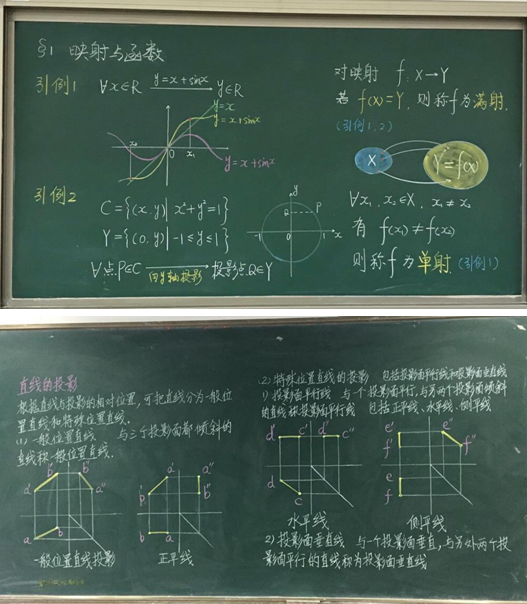 §1 映射与函数
引例1 ∀x∈R y=x+sinx y∈R
y=x
y=x+sinx
x₀ 0 x₁
y=x+sinx
引例2 C={(x,y)| x²+y²=1}
Y={(0,y)| -1≤y≤1}
∀点P∈C 向y轴投影 投影点Q∈Y
y
Q P
-1 0 1 x
对映射 f: X→Y
若 f(X)=Y, 则称f为满射.
(引例1,2)
X Y=f(X)
∀x₁, x₂∈X, x₁≠x₂
有 f(x₁)≠f(x₂)
则称f为单射 (引例1)
直线的投影
根据直线与投影的相对位置,可把直线分为一般位
置直线和特殊位置直线.
(1) 一般位置直线 与三个投影面都倾斜的
直线称一般位置直线.
a' b' b" a"
a b
一般位置直线投影
b' a' a" b"
b a
正平线
(2) 特殊位置直线的投影 包括投影面平行线和投影面垂直线
1) 投影面平行线 与一个投影面平行,与另两个投影面倾斜
的直线称投影面平行线 包括正平线、水平线、侧平线
d' c' d" c"
d c
水平线
e' f' e" f"
e f
侧平线
2) 投影面垂直线 与一个投影面垂直,与另外两个投
影面平行的直线称为投影面垂直线